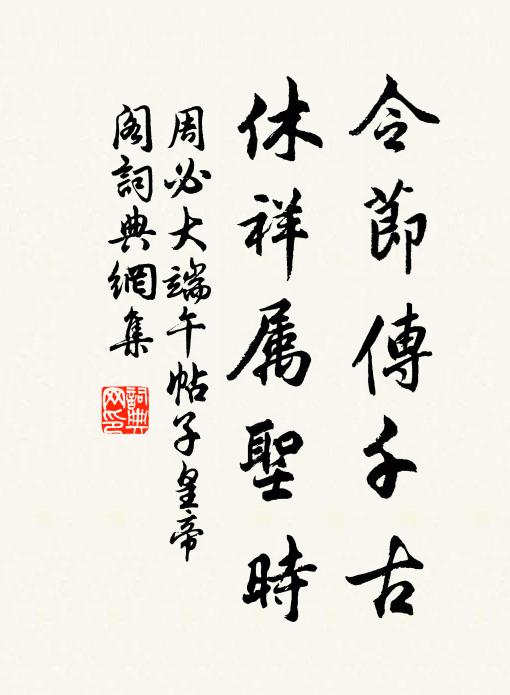 令節傳千古
休祥属聖時
周必大端午帖子皇帝
閣詞典網集
詞典
网印